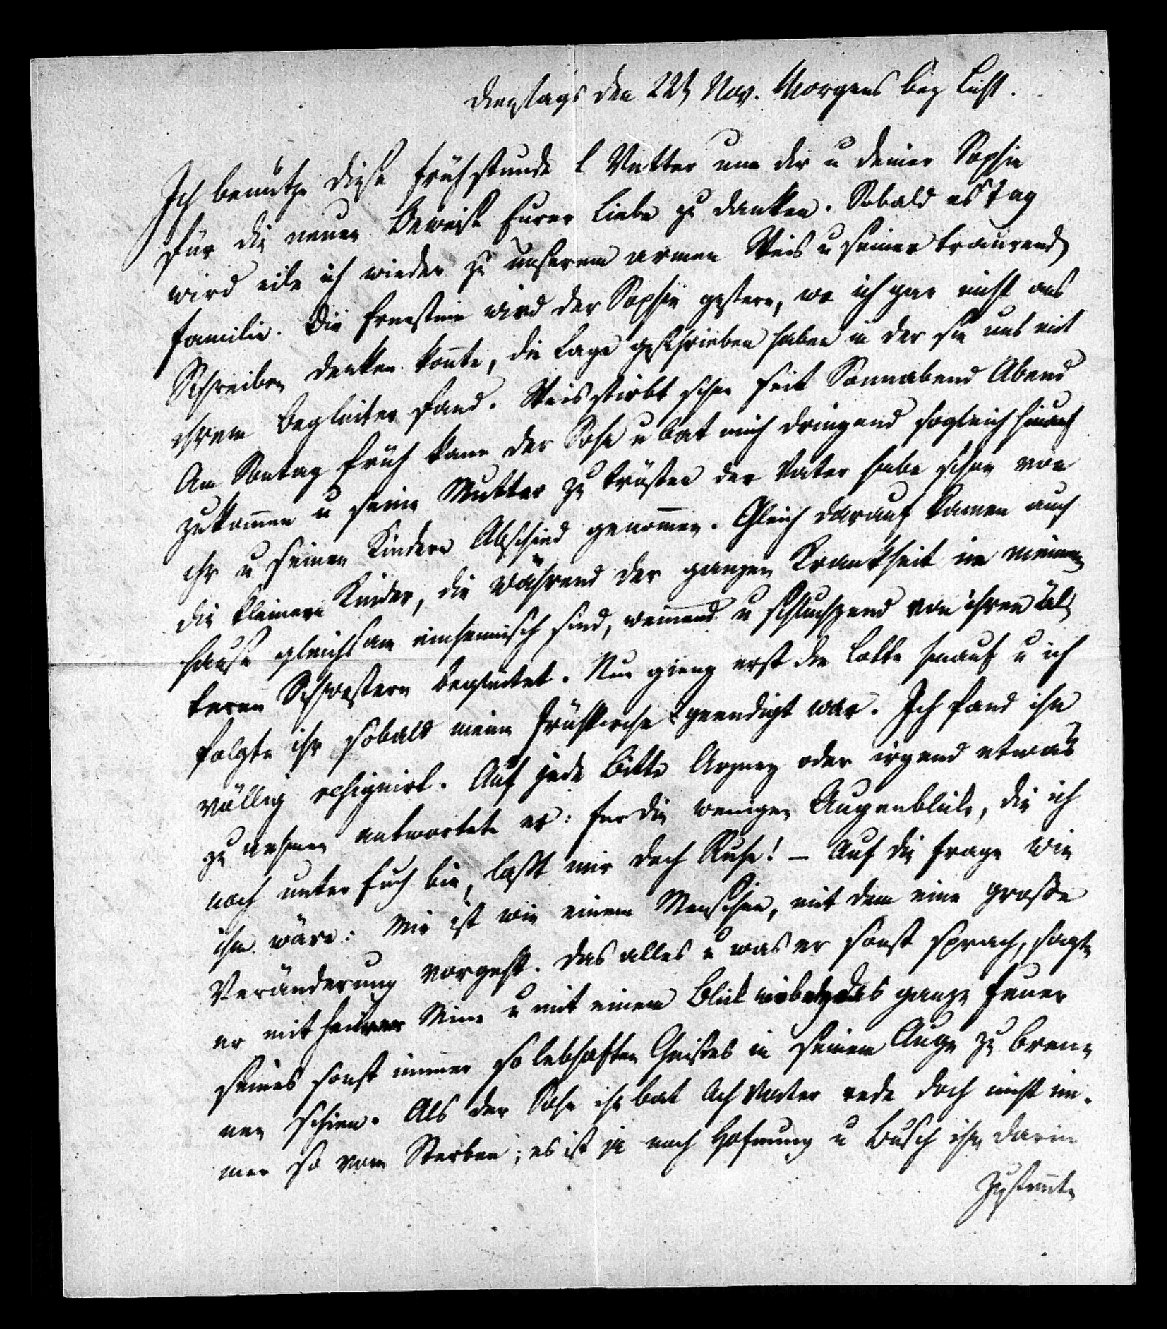 Dienstags den 22t Nov. Morgens bey Licht.
Ich benutze diese Frühstunde l Vatter um dir u deiner Sophie
für die neuen Beweise Eurer Liebe zu danken. Sobald es Tag
wird eile ich wieder zu unserem armen Weis u seiner traurend
Familie. Die Ernestine wird der Sophie gestern, wo ich gar nicht ans
Schreiben denken konnte, die Lage geschrieben haben in der sie uns mit
ihrem Begleiter fand. Weis stirbt schon seit Sonnabend Abend
Am Sontag früh kam der Sohn u bat mich dringend sogleich hinauf
zukommen u seine Mutter zu trösten der Vater habe schon von
ihr u seinen Kindern Abschied genommen. Gleich darauf kamen auch
die kleinern Kinder, die während der ganzen Krankheit in meinem
Hause gleichsam einheimisch sind, weinend u schluchzend von ihren äl
teren Schwestern begleitet. Nun gieng erst die Lotte hinauf u ich
folgte ihr sobald meine Frühkirche geendigt war. Ich fand ihn
völlig resignirt. Auf jede Bitte Arzney oder irgend etwas
zu nehmen antwortete er: für die wenigen Augenblicke, die ich
noch unter Euch bin, laßt mir doch Ruhe! – Auf die Frage wie
ihm wäre: Mir ist wie einem Menschen, mit dem eine große
Veränderung vorgeht. Das alles u was er sonst sprach, sagte
er mit heitrer Mine u mit einem Blick wobey das ganze Feuer
seines sonst immer so lebhaften Geistes in seinem Auge zu bren
nen schien. Als der Sohn ihn bat Ach Vater rede doch nicht im-
mer so vom Sterben; es ist ja noch Hofnung u Busch ihm darin
zustimte